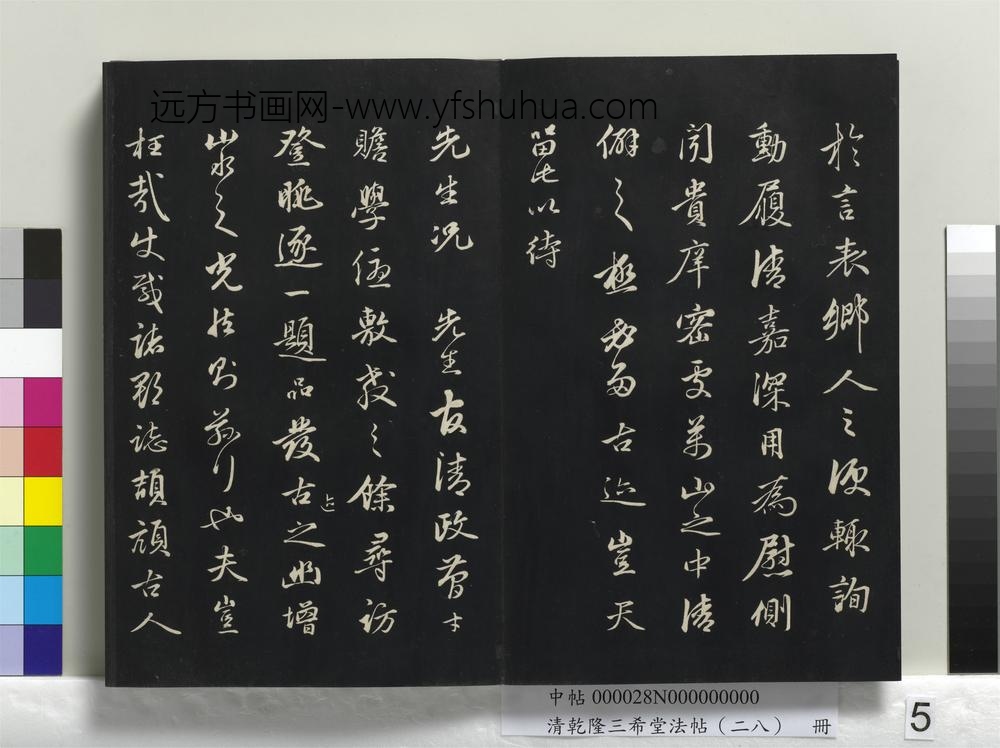 远方书画网-www.yfshuhua.com
於言表鄉人之便輒詢
動履清嘉深用為慰側
聞貴庠密受萬山之中清
僻之極必多古迹豈天
留此以待
先生況 先生友清政尊
贍學優敷教之餘尋訪
登眺逐一題品發古之幽增
迹
山泉之光於前也夫豈
枉哉史載諸郡誌頡頏古人
中帖 000028N000000000
清乾隆三希堂法帖（二八） 冊
5